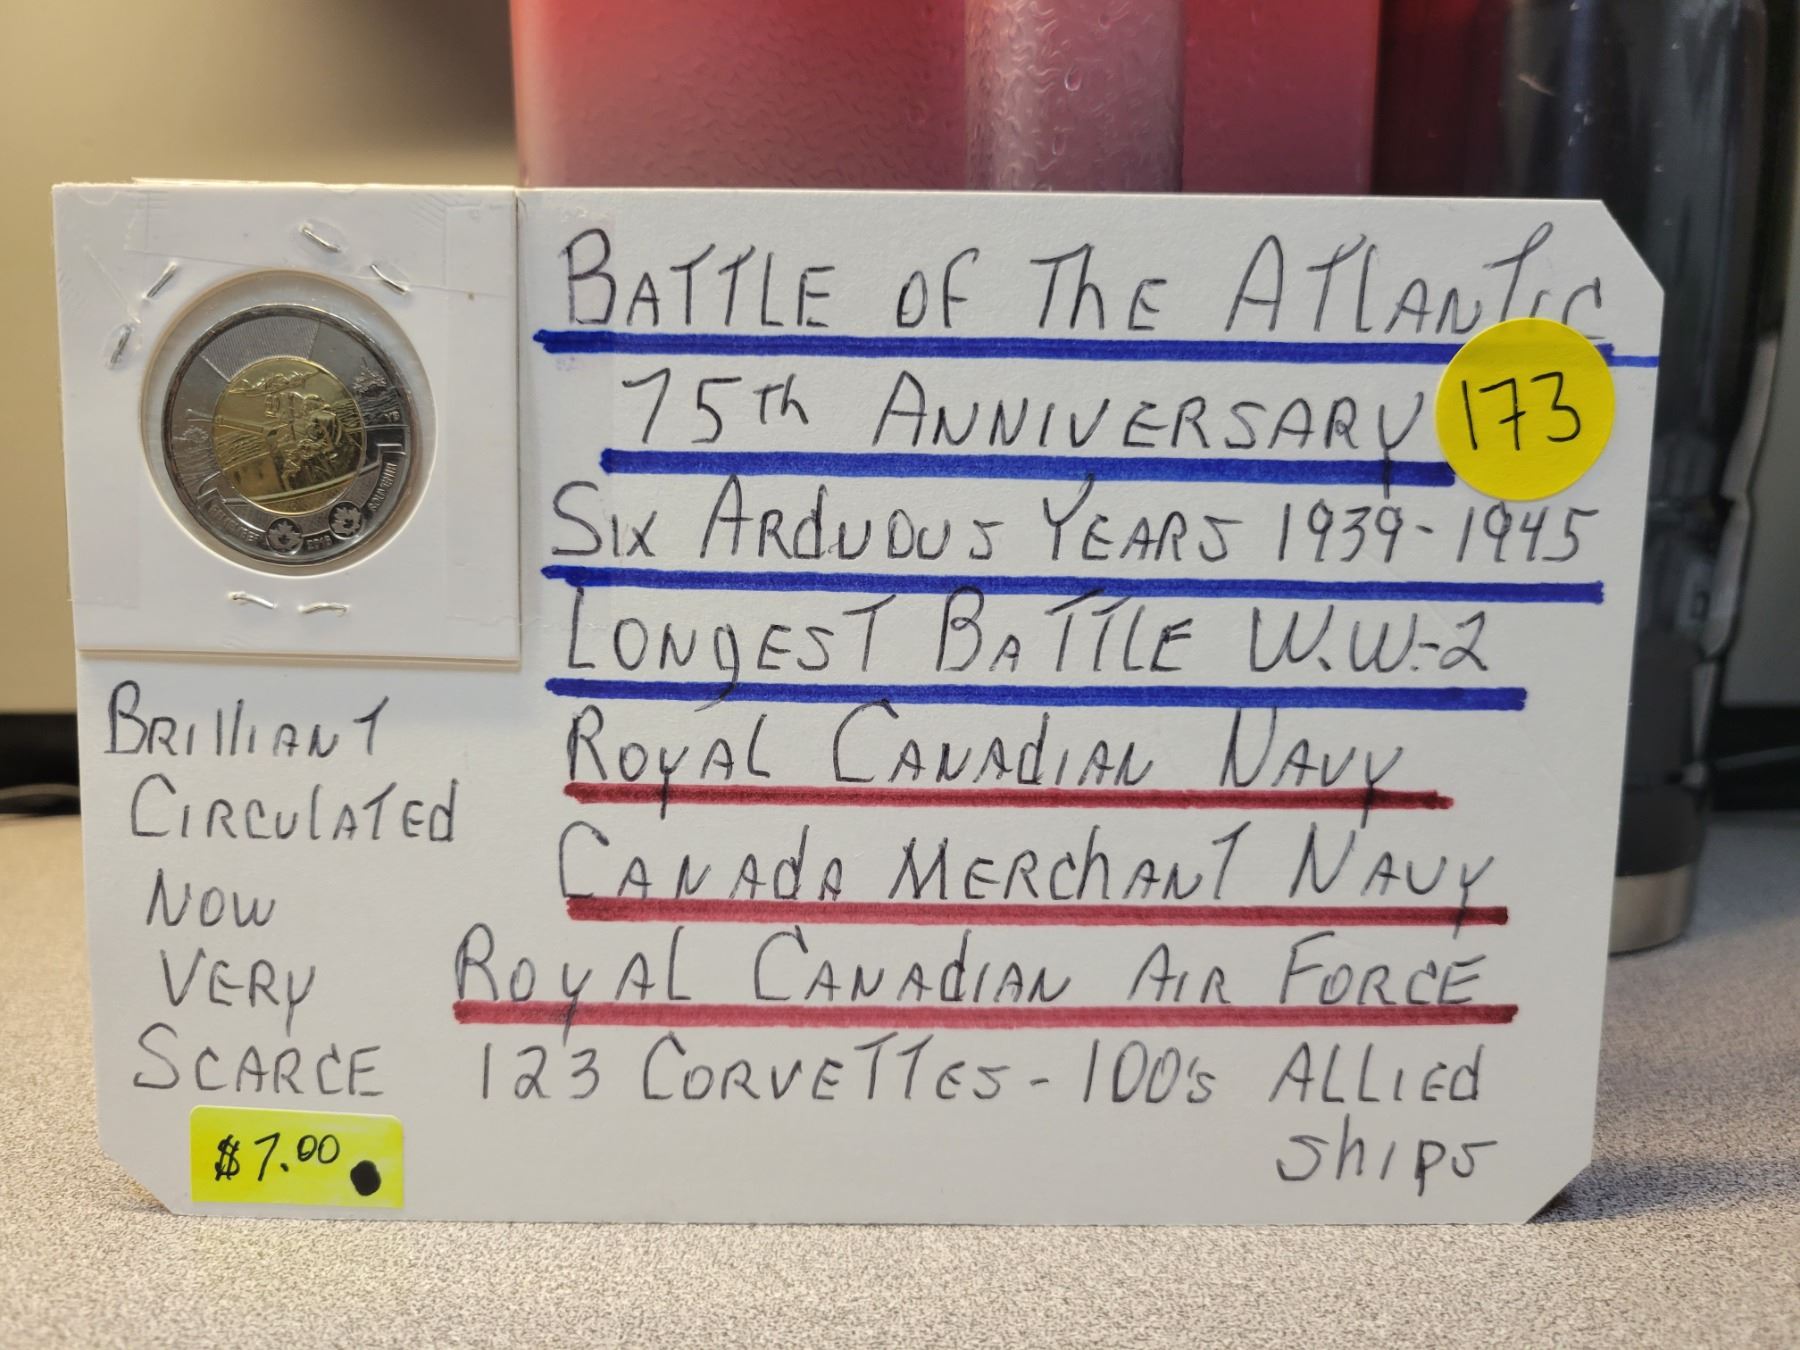 BATTLE OF THE ATLANTIC
75th ANNIVERSARY
173
SIX ARDUOUS YEARS 1939-1945
LONGEST BATTLE W.W-2
ROYAL CANADIAN NAVY
CANADA MERCHANT NAVY
ROYAL CANADIAN AIR FORCE
123 CORVETTES - 100's ALLIED
ships
BRILLIANT
CIRCULATED
NOW
VERY
SCARCE
$7.00